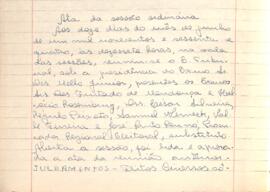 Ata da sessão ordinária
Aos doze dias do mês de junho
de um mil novecentos e sessenta e
quatro, às dezesseis horas, na sala
das sessões, reuniu-se o E. Tribu-
nal, sob a presidência do Exmo. Sr.
Des. Mello Júnior, presentes os Exmos.
Srs. Des. Furtado de Mendonça e
Rosemberg, Drs. Cesar Silveira,
Régulo Peixoto, Samuel Werneck,
Ferreira e José Pinto Renno,
Regional Eleitoral, substituto.
Aberta a sessão, foi lida e aprova-
da a ata da reunião anterior.
JULGAMENTOS - Feitos